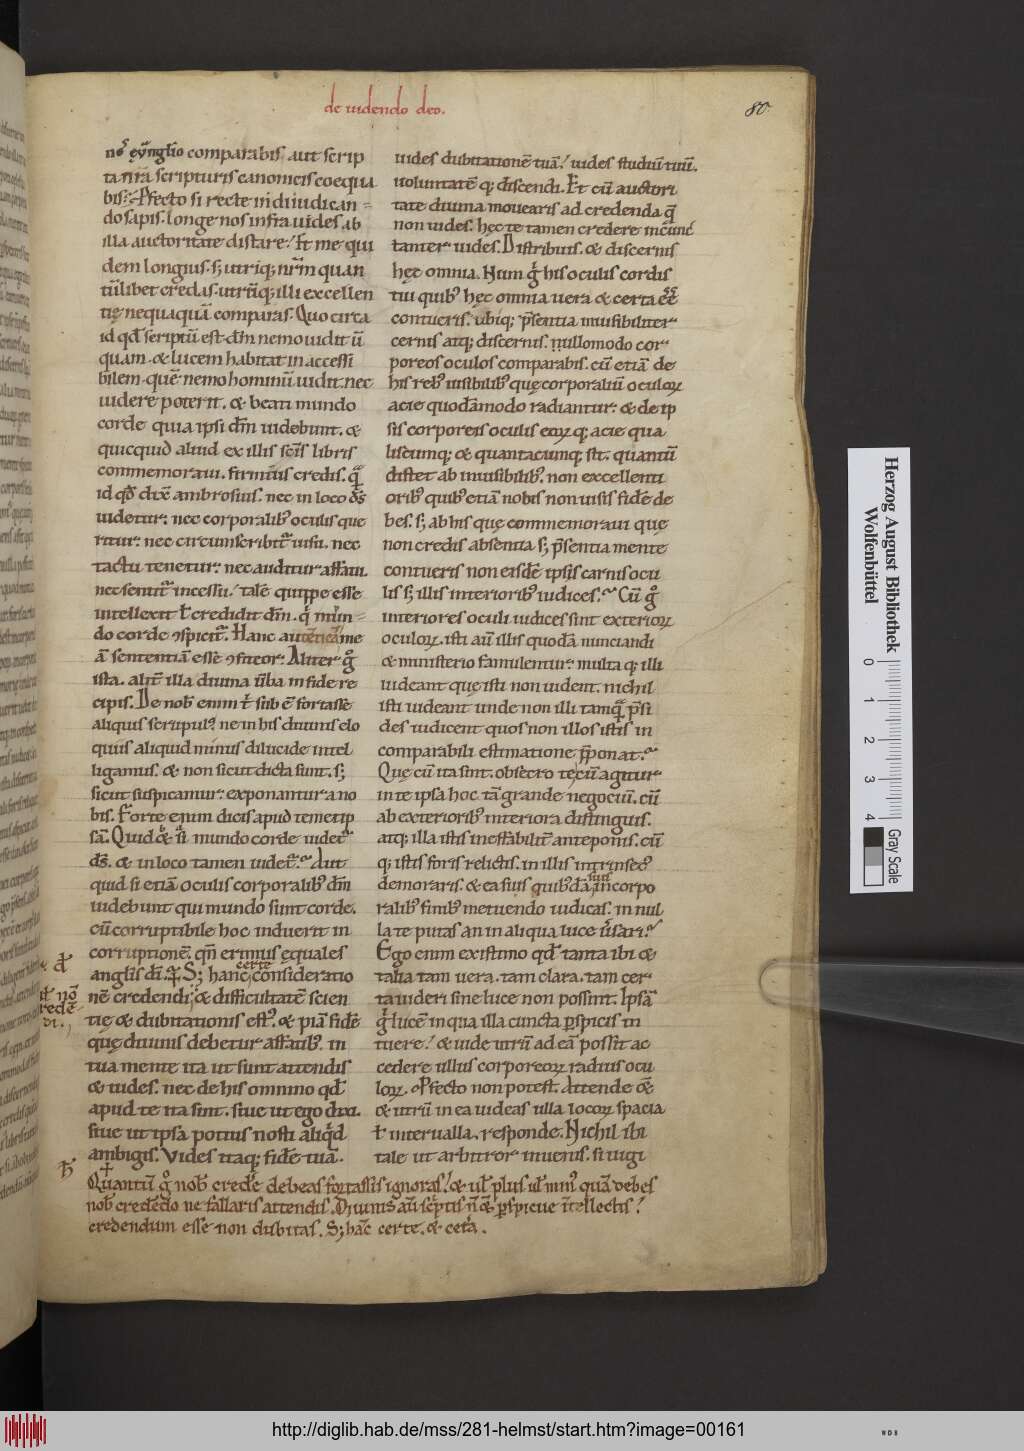 de uidendo deo.
80
nr̃o ęuãnglio comparabis. aut scrip
ta nr̃a scripturis canonicis coequa
bis? Pfecto si recte in diiudican=
do sapis. longe nos infra uides ab
illa auctoritate distare! Et me qui
dem longius. s; utriq; nr̃m quan
tũlibet credas. utrũq; illi excellen
tię nequaquã comparas. Quo circa
id qđ scriptũ est. dm̃ nemo uidit ũ
quam. & lucem habitat in accessi
bilem. quẽ nemo hominũ uidit. nec
uidere poterit. & beati mundo
corde quia ipsi dm̃ uidebunt. &
quicquid aliud ex illis scĩs libris
commemoraui. firmius credis. quã
id qđ dix̃ ambrosius. nec in loco ds̃
uidetur. nec corporalib; oculis quę
ritur. nec circumscribit̃ uisu. nec
tactu tenetur. nec auditur affatu.
nec sentit̃ incessu! talẽ quippe esse
intellexit ł credidit dm̃. qi mun=
do corde ɔspicit̃. Hanc autẽticã me
ã sententiã esse ɔfiteor. Aliter g̊
ista. alit̃ illa diuina ũba in fide re
cipis. De nob enim ł sub ẽ fortasse
aliquis scrupul; ne in his diuinis elo
quiis aliquid minus dilucide intel
ligamus. & non sicut dicta sunt. s;
sicut suspicamur. exponantur a no
bis. Forte enim dicis apud temetip
sũ. Quid & si mundo corde uidet̃
ds̃. & in loco tamen uidet̃? Aut
quid si etiã oculis corporalib; dm̃
uidebunt qui mundo sunt corde.
cũ corruptibile hoc induerit in
corruptionẽ. qñ erimus ęquales
anglis dĩ? S; hanc certe consideratio
nẽ credendi; & difficultatẽ scien
tię & dubitationis est; & piã fidẽ
quę diuinis debetur affatib;. in
tua mente ita ut sunt attendis
& uides. nec de his omnino qđ
apud te ita sint. siue ut ego dixi.
siue ut ipsa potius nosti aliqd
ambigis. Vides itaq; fidẽ tuã.
uides dubitationẽ tuã! uides studiũ tuũ.
uoluntatẽ q; discendi. Et cũ auctori
tate diuina mouearis ad credenda quę
non uides. hęc te tamen credere incunc
tanter uides. Distribuis. & discernis
hęc omnia. Num g̊ his oculis cordis
tui quib; hęc omnia uera & certa eẽ
contueris. ubiq; p̃sentia inuisibiliter
cernis atq; discernis. nullomodo cor
poreos oculos comparabis. cũ etiã de
his reb; uisibilib; quę corporaliũ oculoꝝ
acie quodãmodo radiantur. & de ip
sis corporeis oculis eoꝝ q; acie qua
liscumq; & quantacumq; sit. quantũ
distet ab inuisibilib;. non excellenti
orib; quib; etiã nobis non uisis fidẽ de
bes. s; ab his quę commemoraui quę
non credis absentia s; p̃sentia mente
contueris non eisdẽ ipsis carnis ocu
lis s; illis interiorib; iudices? Cũ g̊
interiores oculi iudices sint exterioꝝ
oculoꝝ. isti aũ illis quodã nunciandi
& ministerio famulentur. multa q; illi
uideant quę isti non uident. nichil
isti uideant unde non illi tamquã p̃si
des iudicent quos non illos istis in
comparabili estimatione p̃ponat?
Quę cũ ita sint. obsecro te cũ agitur
in te ipsa hoc tã grande negociũ. cũ
ab exteriorib; interiora distinguis.
atq; illa istis ineffabilit̃ anteponis. cũ
q; istis foris relictis. in illis intrinsec;
demoraris. & ea suis quib;dã incorpo
ralib; finib; metiendo iudicas. in nul
la te putas an in aliqua luce ũsari?
Ego enim existimo qđ tanta ibi &
talia tam uera. tam clara. tam cer
ta uideri sine luce non possint. Ipsã
g̊ lucẽ in qua illa cuncta p̱spicis in
tuere! & uide utrũ ad eã possit ac
cedere ullus corporeoꝝ radius ocu
loꝝ. Pfecto non potest. Attende &
& utrũ in ea uideas ulla locoꝝ spacia
ł interualla. responde. Nichil ibi
tale ut arbitror inuenis. si uigi
Quantũ g̊ nob credẽ debeas fortassis ignoras! & ul̃ plus ul̃ min; quã debes
nob credẽdo ne fallaris attendis. Diuinis aũt sc̃ptis ñ & p̱spicue ĩtellectis!
credendum esse non dubitas. S; hac̃ certe. & cet̃a.
Herzog August Bibliothek
Wolfenbüttel
0 1 2 3 4
Gray Scale
http://diglib.hab.de/mss/281-helmst/start.htm?image=00161
WDB